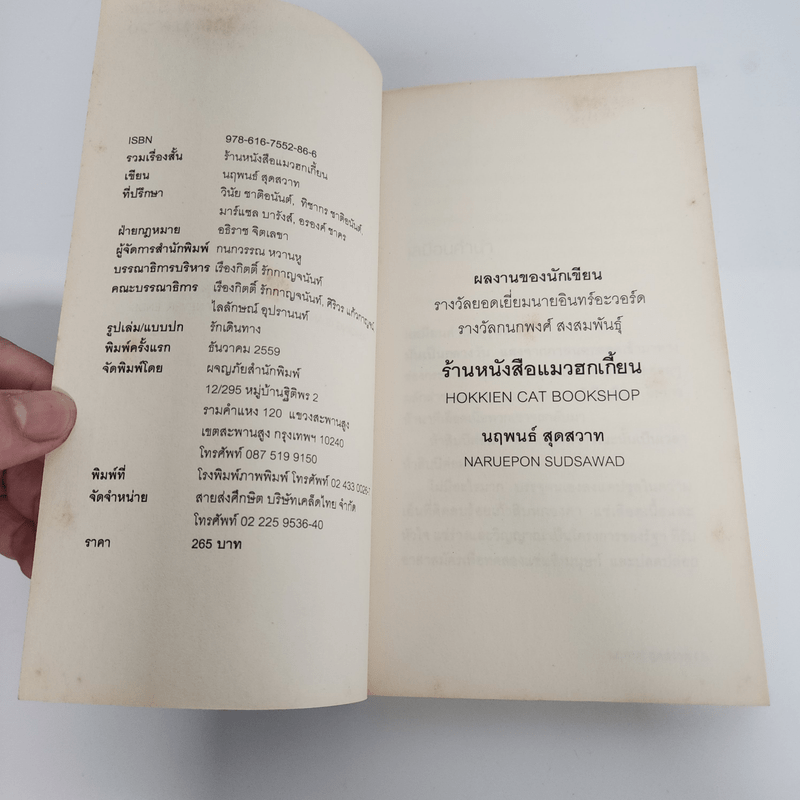 ISBN 978-616-7552-86-6
รวมเรื่องสั้น ร้านหนังสือแมวฮกเกี้ยน
เขียน นฤพนธ์ สุดสวาท
ที่ปรึกษา วินัย ชาติอนันต์, ทิชากร ชาติอนันต์,
มาร์แซล บารังส์, อรองค์ ชาคร
ฝ่ายกฎหมาย อธิราช จิตเลขา
ผู้จัดการสำนักพิมพ์ กนกวรรณ หวานหู
บรรณาธิการบริหาร เรืองกิตติ์ รักกาญจนันท์
คณะบรรณาธิการ เรืองกิตติ์ รักกาญจนันท์, ศิริวร แก้วกาญจน์,
ไลลักษณ์ อุปรานนท์
รูปเล่ม/แบบปก รักเดินทาง
พิมพ์ครั้งแรก ธันวาคม 2559
จัดพิมพ์โดย ผจญภัยสำนักพิมพ์
12/295 หมู่บ้านฐิติพร 2
รามคำแหง 120 แขวงสะพานสูง
เขตสะพานสูง กรุงเทพฯ 10240
โทรศัพท์ 087 519 9150
พิมพ์ที่ โรงพิมพ์ภาพพิมพ์ โทรศัพท์ 02 433
จัดจำหน่าย สายส่งศึกษิต บริษัทเคล็ดไทย จำกัด
โทรศัพท์ 02 225 9536-40
ราคา 265 บาท
ผลงานของนักเขียน
รางวัลยอดเยี่ยมนายอินทร์อะวอร์ด
รางวัลกนกพงศ์ สงสมพันธุ์
ร้านหนังสือแมวฮกเกี้ยน
HOKKIEN CAT BOOKSHOP
นฤพนธ์ สุดสวาท
NARUEPON SUDSAWAD